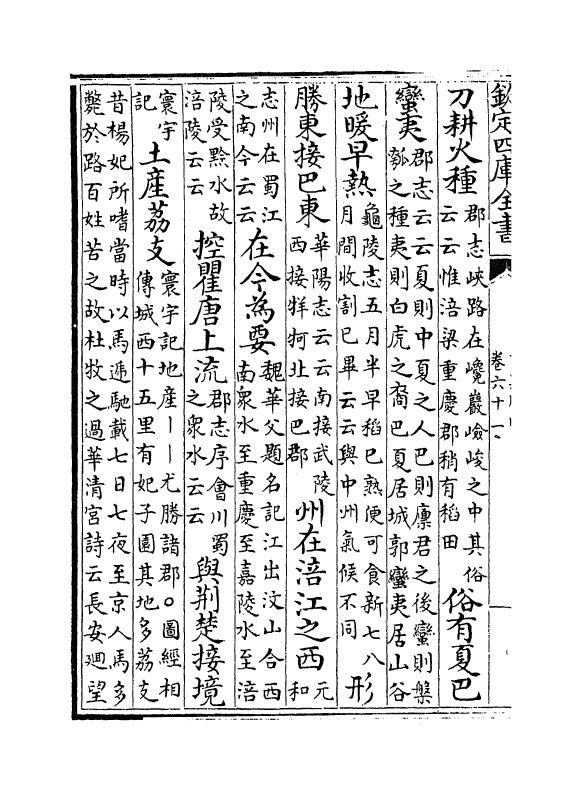 欽定四庫全書
卷六十一
刀耕火種郡志峽路在巉巖嶮峻之中其俗云云惟涪梁重慶郡稍有稻田俗有夏巴
蠻夷郡志云云夏則中夏之人巴則廩君之後蠻則槃瓠之種夷則白虎之裔巴夏居城郭蠻夷居山谷
地暖早熱龜陵志五月半早稻已熟便可食新七八月間收割已畢云云與中州氣候不同形
勝東接巴東華陽志云云南接武陵西接牂柯北接巴郡州在涪江之西元和
志州在蜀江之南今云云在今為要魏華父題名記江出汶山合西南衆水至重慶至嘉陵水至涪
陵受黔水故涪陵云云控瞿唐上流郡志序會川蜀之衆水云云與荆楚接境
寰宇記土産荔支寰宇記地産――尤勝諸郡○圖經相傳城西十五里有妃子園其地多荔支
昔楊妃所嗜當時以馬遞馳載七日七夜至京人馬多斃於路百姓苦之故杜牧之過華清宫詩云長安廻望